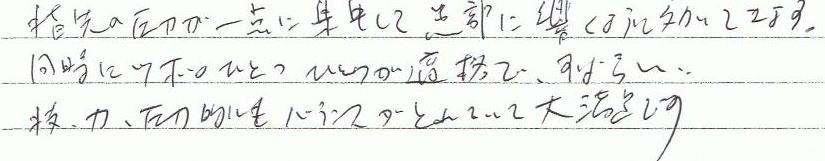 指先の圧力が一点に集中して患部に響くように効いてきます。
同時にツボのひとつひとつが適格で、すばらしい。
技、力、圧力的にもバランスがとれていて大満足です